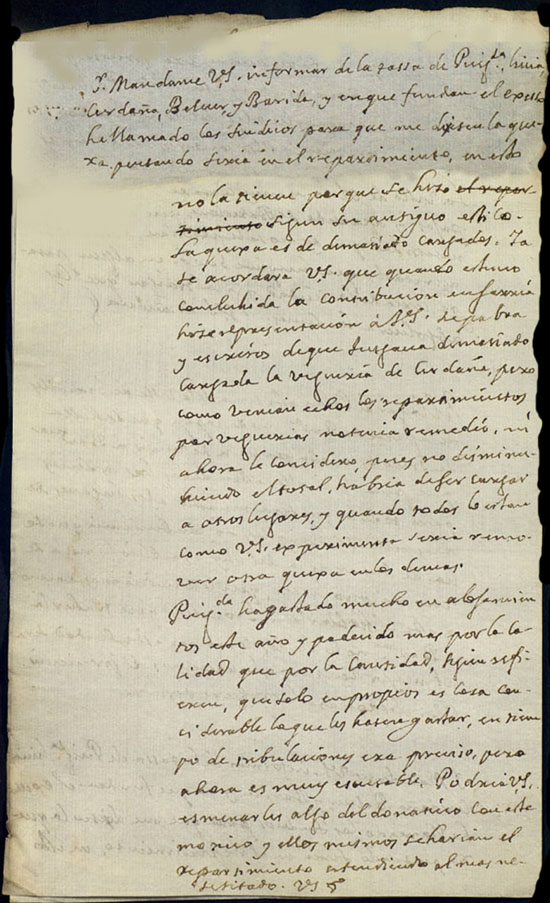 Sr. Mandame V.S. informar de la tassa de Puigda. livia,
Cerdaña, Belver, y Barida, y en que fundan el exceso
he llamado los sindicos para que me dixesen la que-
xa, pensando seria en el repartimiento, en esto
no la tienen porque se hizo el repar-
timiento sigun su antiguo estilo.
La quexa es de demasiado cargados. Ya
se acordara V.S. que quando estuvo
concluhida la contribución en
hize representación á V.S. de palabra
y escritos de que jusgava demasiado
cargada la vegueria de Cerdaña, pero
como venian echos los repartimientos
por veguerias no tenia remedio, ni
ahora le considero, pues no disminu-
hiendo el total, habria de ser cargar
a otros lugares, y quando todos lo estan
como V.S. experimenta seria remo-
ver otra quexa en los demas.
Puigda. ha gastado mucho en alojamien-
tos este año y padecido mas por la ca-
lidad que por la cantidad, sigun refi-
eren, que solo en propios es cosa con-
ciderable lo que les hasen gastar, en tiem-
po de tribulaciones era preciso, pero
ahora es muy escusable. Podria V.S.
esmenarles algo del donativo con este
motivo y ellos mismos se harian el
repartimiento atendiendo al mas ne-
sesitado. V.S.